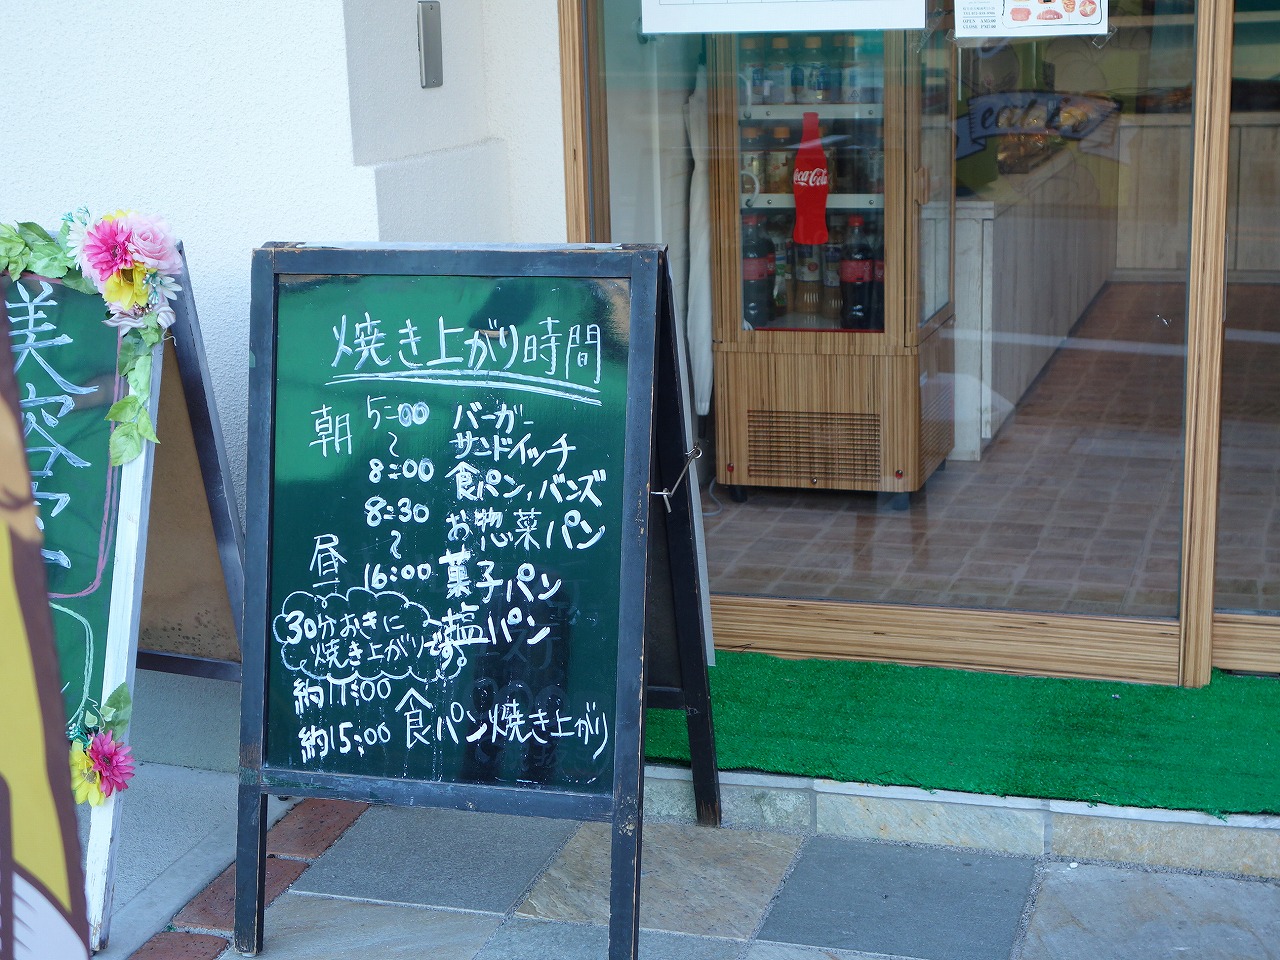 焼き上がり時間
朝 5:00 バーガー
〜 サンドイッチ
8:00 食パン、バンズ
8:30 お惣菜パン
昼 〜
16:00 菓子パン
塩パン
30分おきに
焼き上がりです。
約11:00
約15:00 食パン焼き上がり
美容室
Coca-Cola
OPEN AM5:00